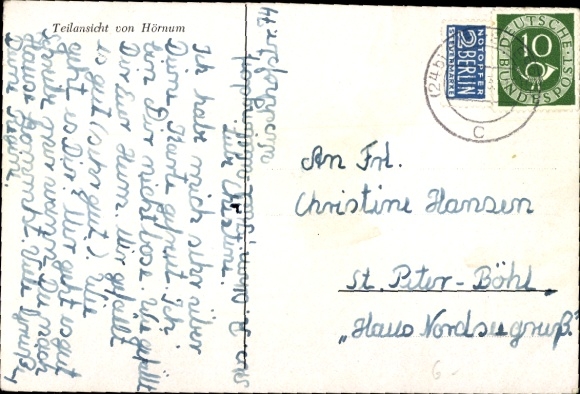 Teilansicht von Hörnum
Liebe Christine.
Ich habe mich sehr über
Deine Karte gefreut. Ich
bin Dir nicht böse. Wie gefällt
Dir Euer Heim. Mir gefällt
es gut (sehr gut). Wie
geht es Dir. Mir geht es gut
Schreibe mir wann Du nach
Hause kommst. Viele Grüße
Deine
NOTOPFER
2 BERLIN
STEUERMARKE
DEUTSCHE
10
BUNDESPOST
(24b)
C
An Frl.
Christine Hansen
St. Peter-Böhl
„Haus Nordseegruß."
6-